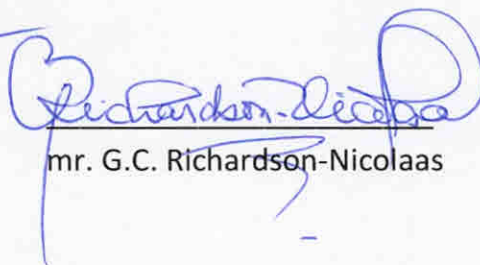 Richardson-Nicolaas
mr. G.C. Richardson-Nicolaas